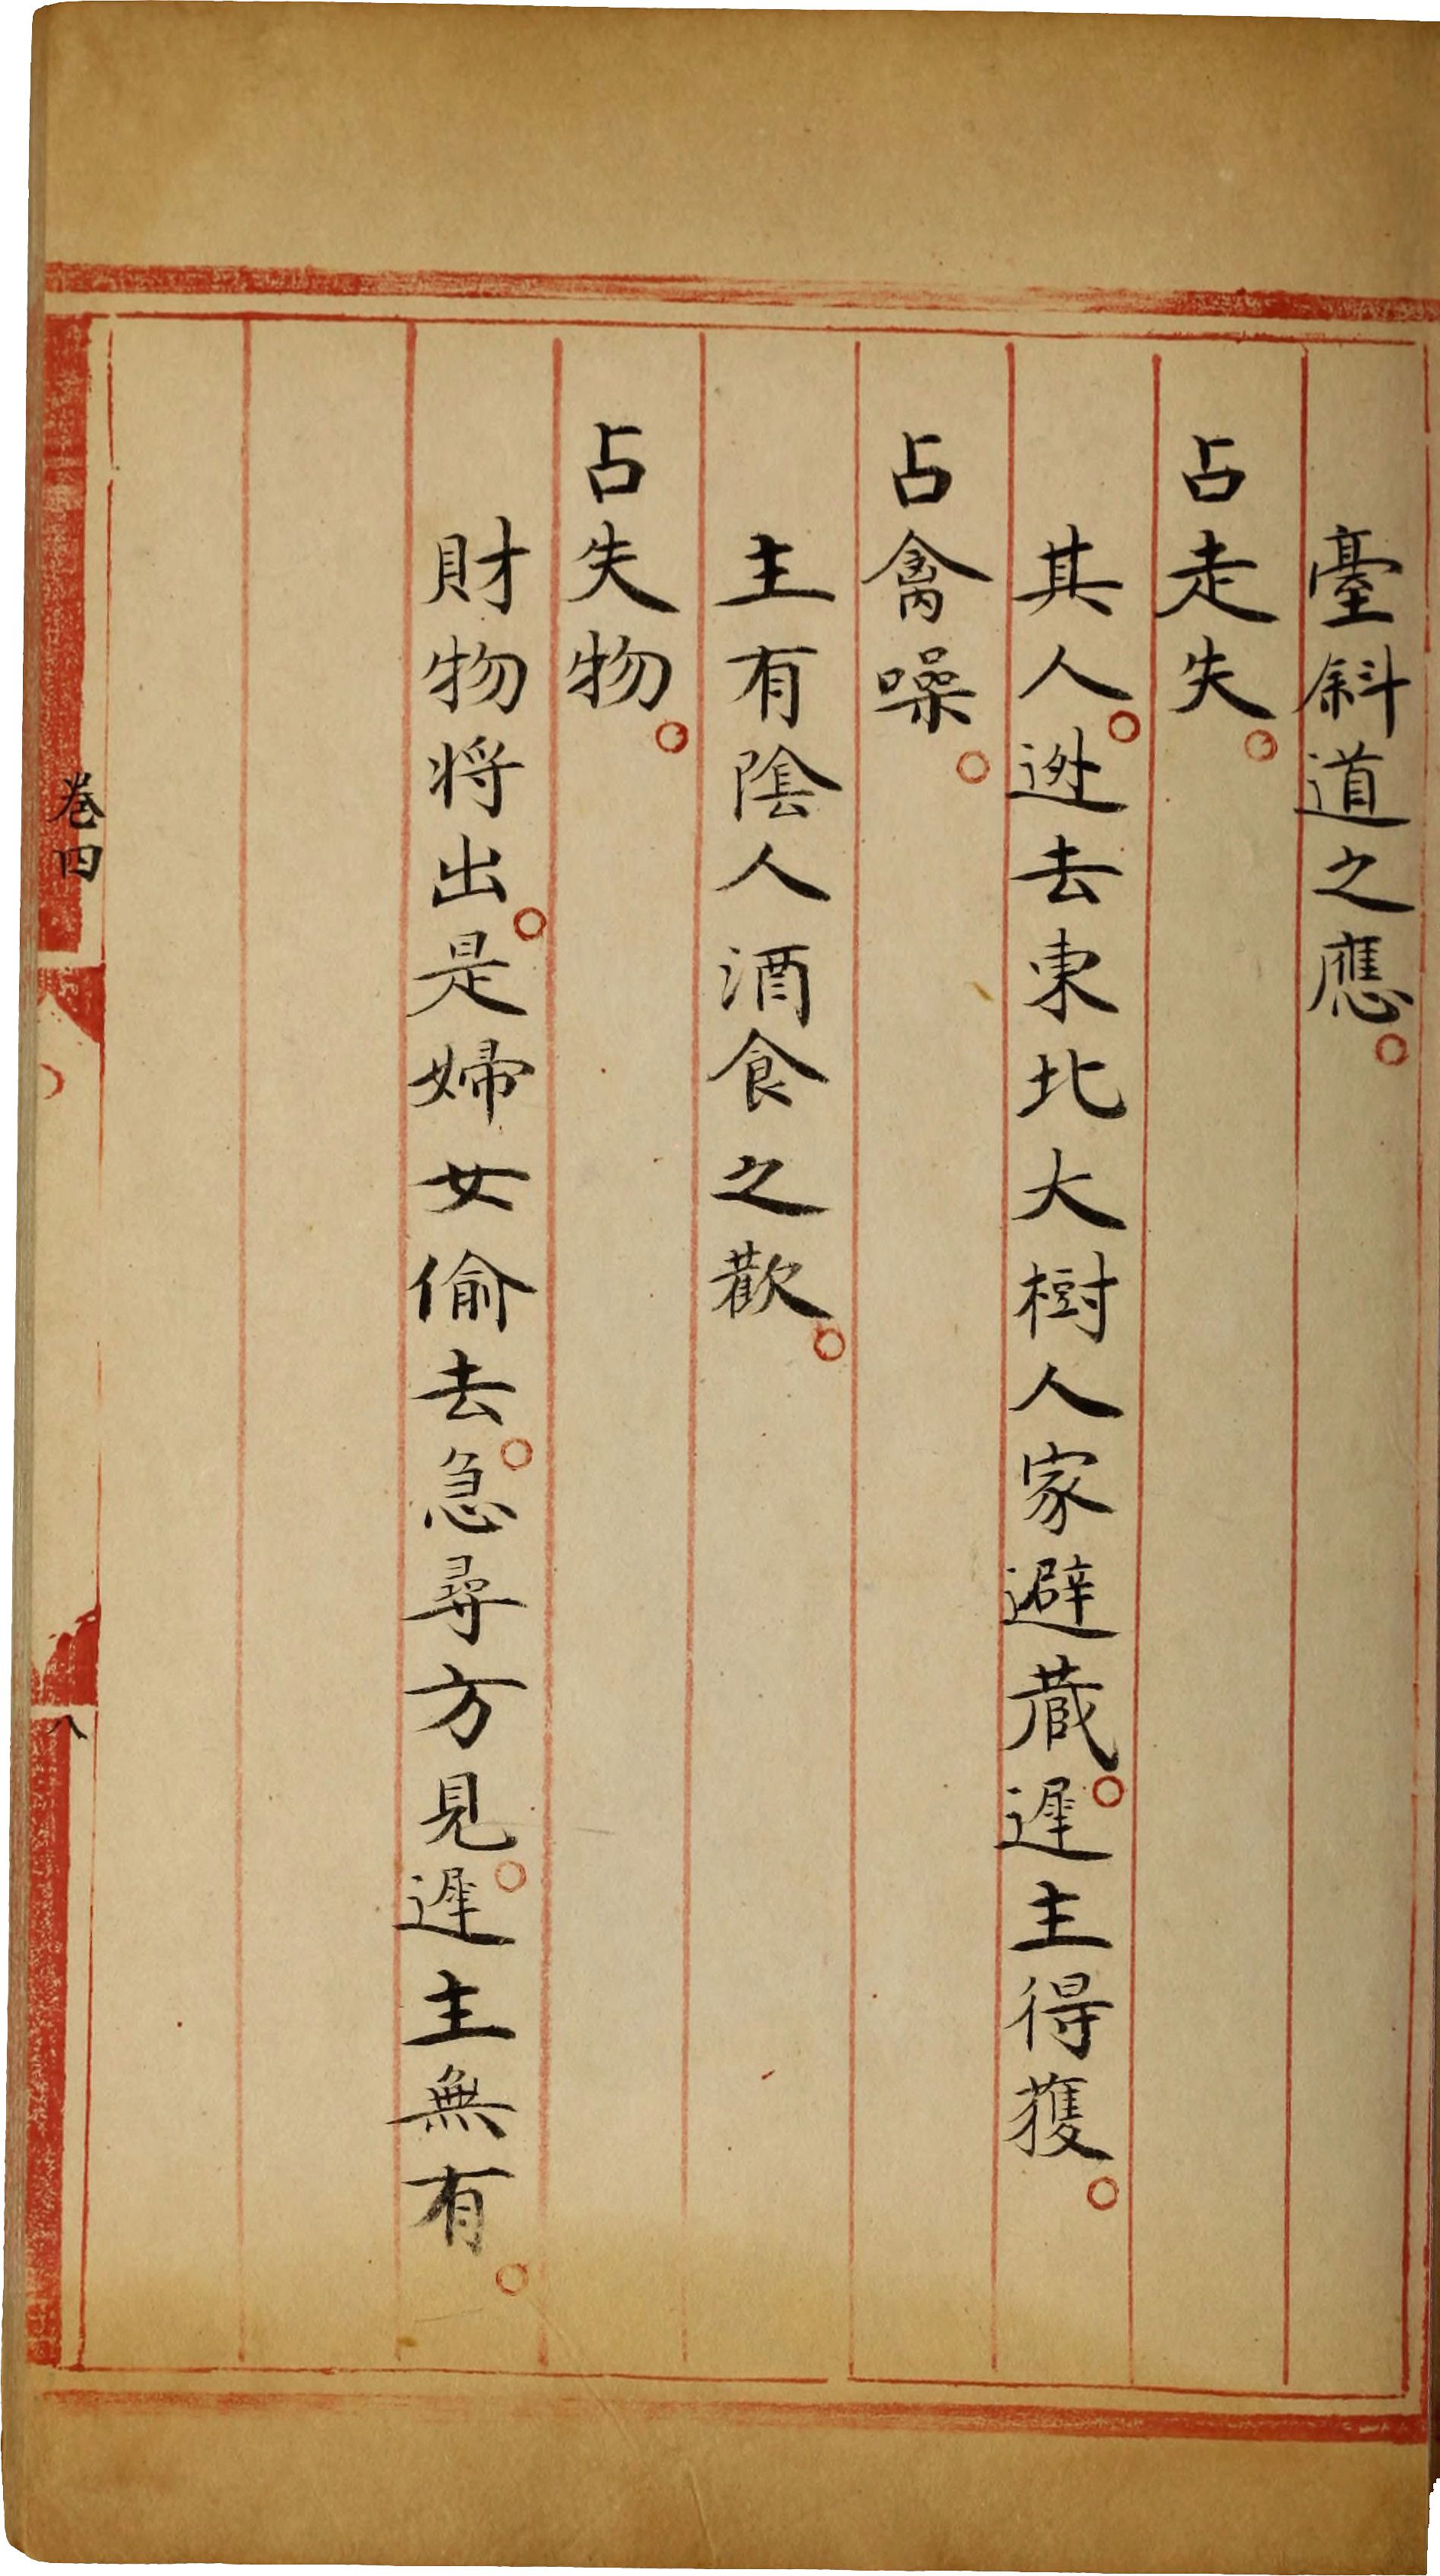 臺斜道之應。
占走失。
其人。逃去東北大樹人家避藏。遲主得獲。
占禽噪。
主有陰人酒食之歡。
占失物。
財物將出。是婦女偷去。急尋方見。遲主無有。
卷四
八